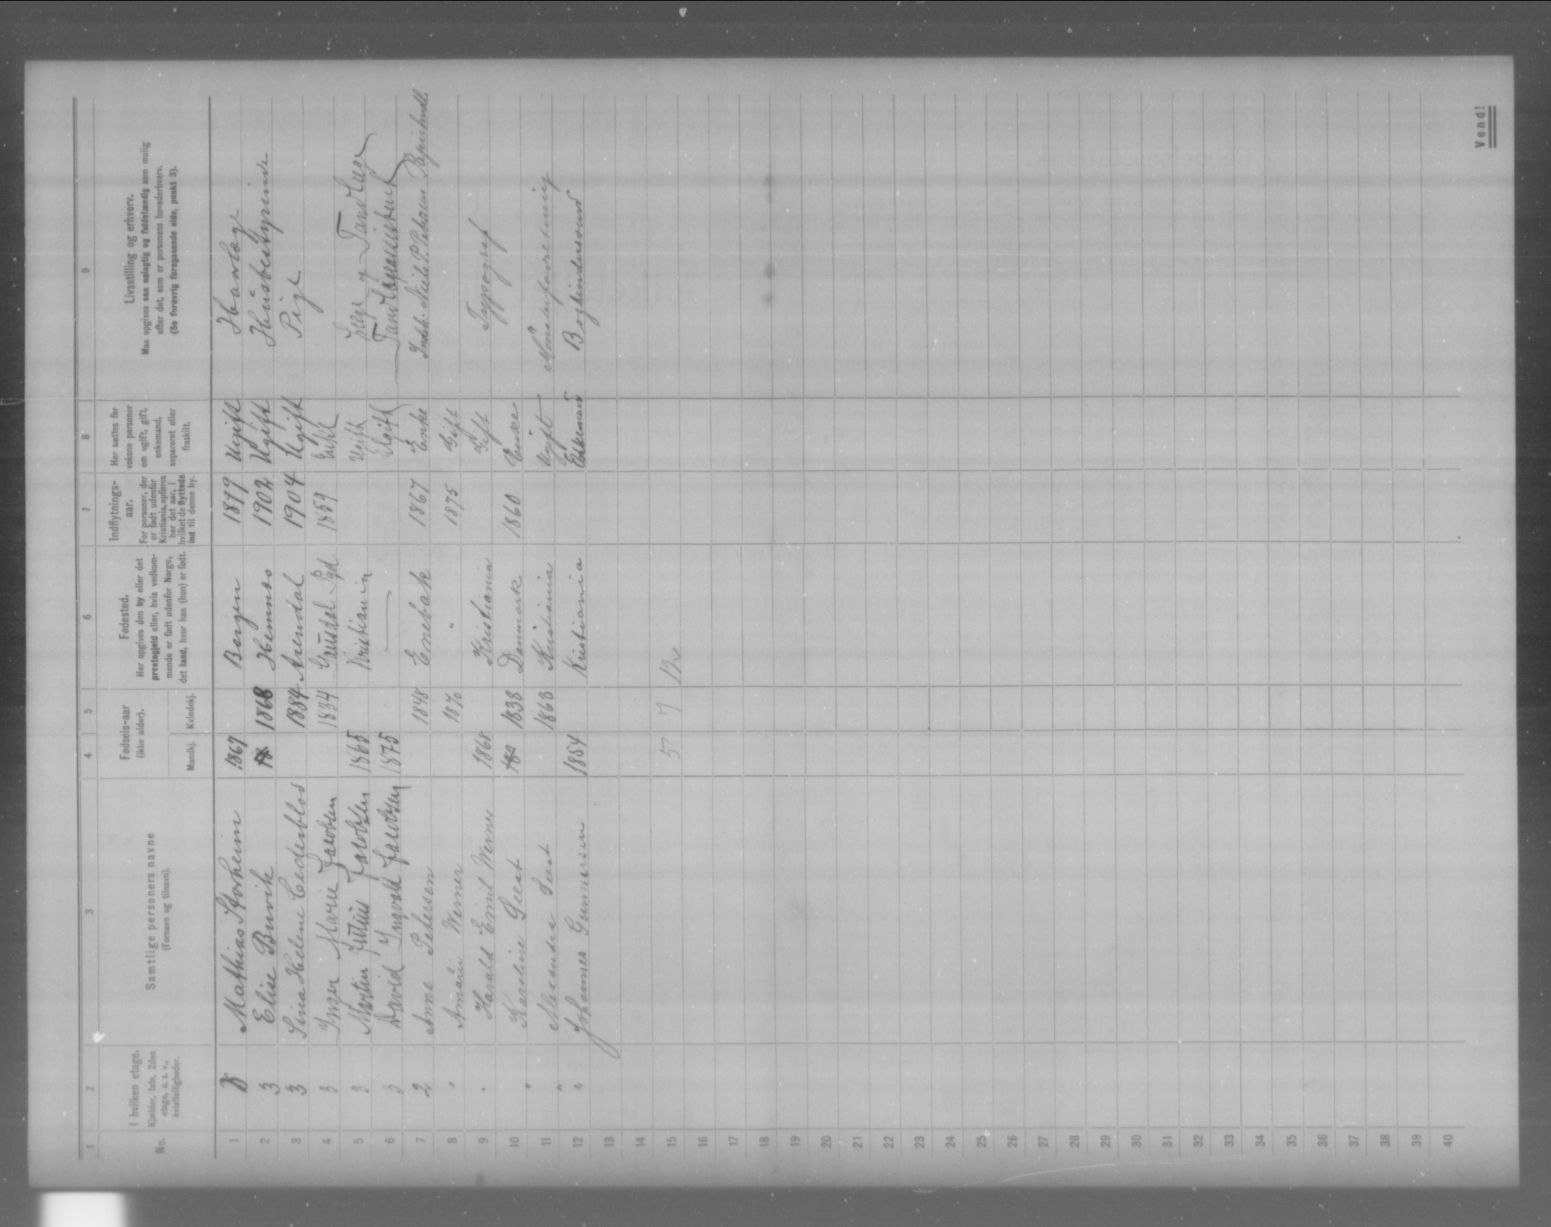 1 2 3 4 5 6 7 8 9
No.
I hvilken etage.
Kjælder, 1ste, 2den
etage, o. s. v.,
kvistleiligheder.
Samtlige personers navne
(Fornavn og tilnavn).
Fødsels-aar
(ikke alder).
Mandkj. Kvindekj.
Fødested.
Her opgives den by eller det
prestegjeld eller, hvis vedkom-
mende er født udenfor Norge,
det land, hvor han (hun) er født.
Indflytnings-
aar.
For personer, der
er født udenfor
Kristiania, opføres
her det aar, i
hvilket de flyttede
ind til denne by.
Her sættes for
voksne personer
om ugift, gift,
enkemand,
separeret eller
fraskilt.
Livsstilling og erhverv.
Man opgives saa nøiagtig og fuldstændig som mulig
efter det, som er personens hovederhverv.
(Se forøvrig foregaaende side, punkt 3).
1 3 Mathias Storheim 1867 Bergen 1899 Ugift
2 3 Elise Burvik 1868 Hemnes 1902 Ugift Husbestyrinde
3 3 Helene Cederblod 1884 Arendal 1904 Ugift Pige
4 3 Inger Marie Jacobsen 1834 1859 Enke
5 3 Martin Julius Jacobsen 1865 Kristiania Ugift Læge og Tandlæge
6 3 David Ingvald Jacobsen 1875 — Ugift Tandlægeassistent
7 2 Anne Petersen 1848 Enebak 1867 Enke
8 " Werner 1870 " 1875 Gift
9 " Harald Emil Werner 1868 Kristiania Gift Typograf
10 " Karoline 1838 Danmark 1860 Enke
11 " 1863 Kristiania Ugift
12 " Johannes Gunnersen 1854 Kristiania Bogbindersvend
13
14
15 5 7 12
16
17
18
19
20
21
22
23
24
25
26
27
28
29
30
31
32
33
34
35
36
37
38
39
40
Vend!